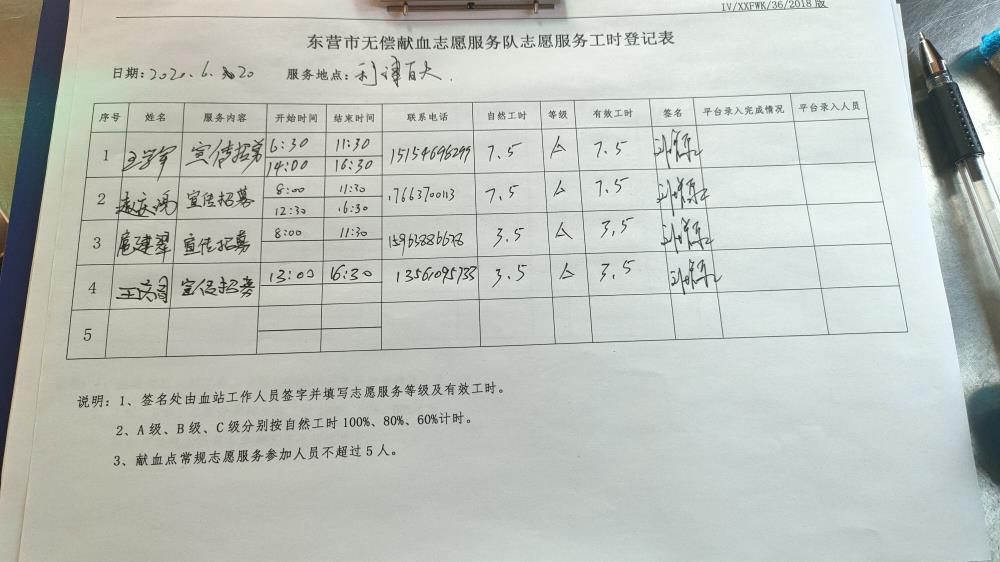 IV/XXFWK/36/2018版
东营市无偿献血志愿服务队志愿服务工时登记表
日期：2020.6.20 服务地点：利津百大.
序号 姓名 服务内容 开始时间 结束时间 联系电话 自然工时 等级 有效工时 签名 平台录入完成情况 平台录入人员
1 宣传招募 6:30 11:30 15154696299 7.5 A 7.5
14:00 16:30
2 宣传招募 8:00 11:30 7.5 A 7.5
12:30 16:30
3 宣传招募 8:00 11:30 3.5 A 3.5
4 宣传招募 13:00 16:30 13561095733 3.5 A 3.5
5
说明：1、签名处由血站工作人员签字并填写志愿服务等级及有效工时。
2、A级、B级、C级分别按自然工时100%、80%、60%计时。
3、献血点常规志愿服务参加人员不超过5人。